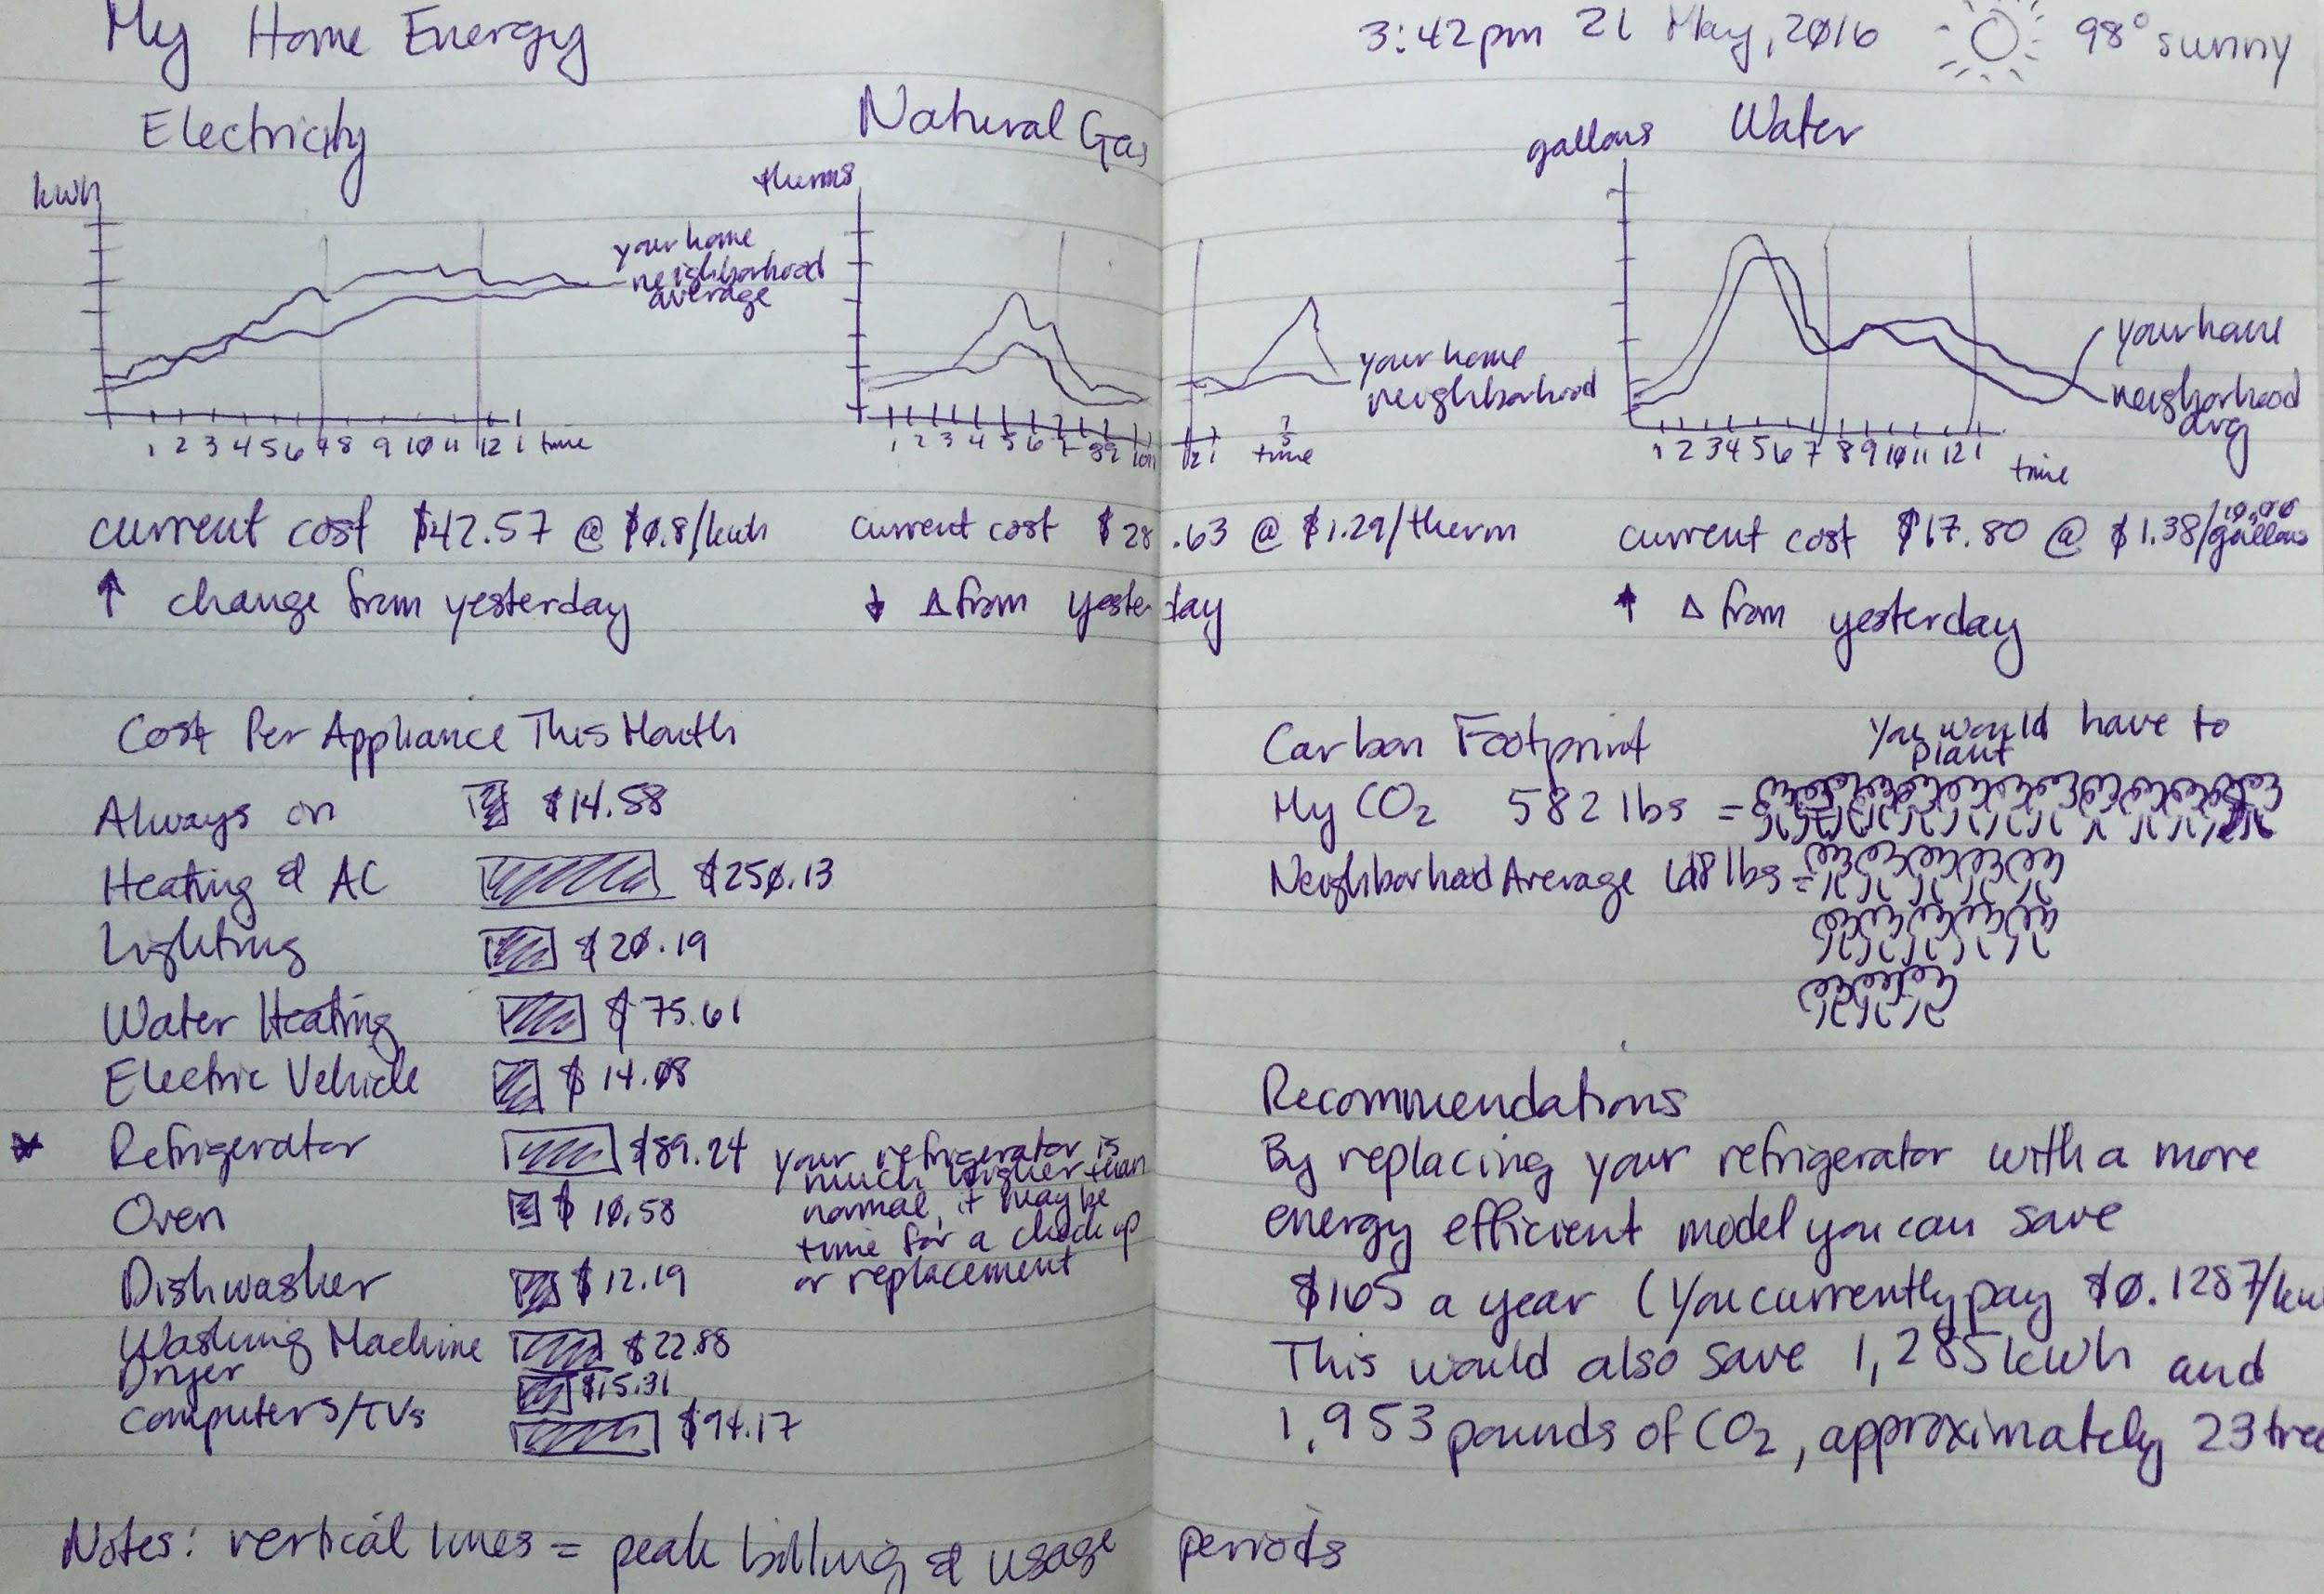 My Home Energy
3:42pm 21 May, 2016 98° sunny
Electricity
kwh
your home
neighborhood
average
1 2 3 4 5 6 7 8 9 10 11 12 1 time
current cost $42.57 @ $0.8/kwh
↑ change from yesterday
Natural Gas
therms
your home
neighborhood
1 2 3 4 5 6 7 8 9 10 11 12 1 time
current cost $28.63 @ $1.29/therm
↓ Δ from yesterday
Water
gallons
your home
neighborhood
avg
1 2 3 4 5 6 7 8 9 10 11 12 1 time
current cost $17.80 @ $1.38/gallons
↑ Δ from yesterday
Cost Per Appliance This Month
Always on $14.58
Heating & AC $250.13
Lighting $20.19
Water Heating $75.61
Electric Vehicle $14.08
Refrigerator $89.24
your refrigerator is
much higher than
normal, it may be
time for a check up
or replacement
Oven $10.58
Dishwasher $12.19
Washing Machine $22.88
Dryer $15.31
Computers/TVs $94.17
Carbon Footprint
You would have to
plant
My CO2 582 lbs =
Neighborhood Average lbs =
Recommendations
By replacing your refrigerator with a more
energy efficient model you can save
$165 a year (You currently pay $0.1287/kw
This would also save 1,285 kwh and
1,953 pounds of CO2, approximately 23 tree
Notes: vertical lines = peak billing & usage periods